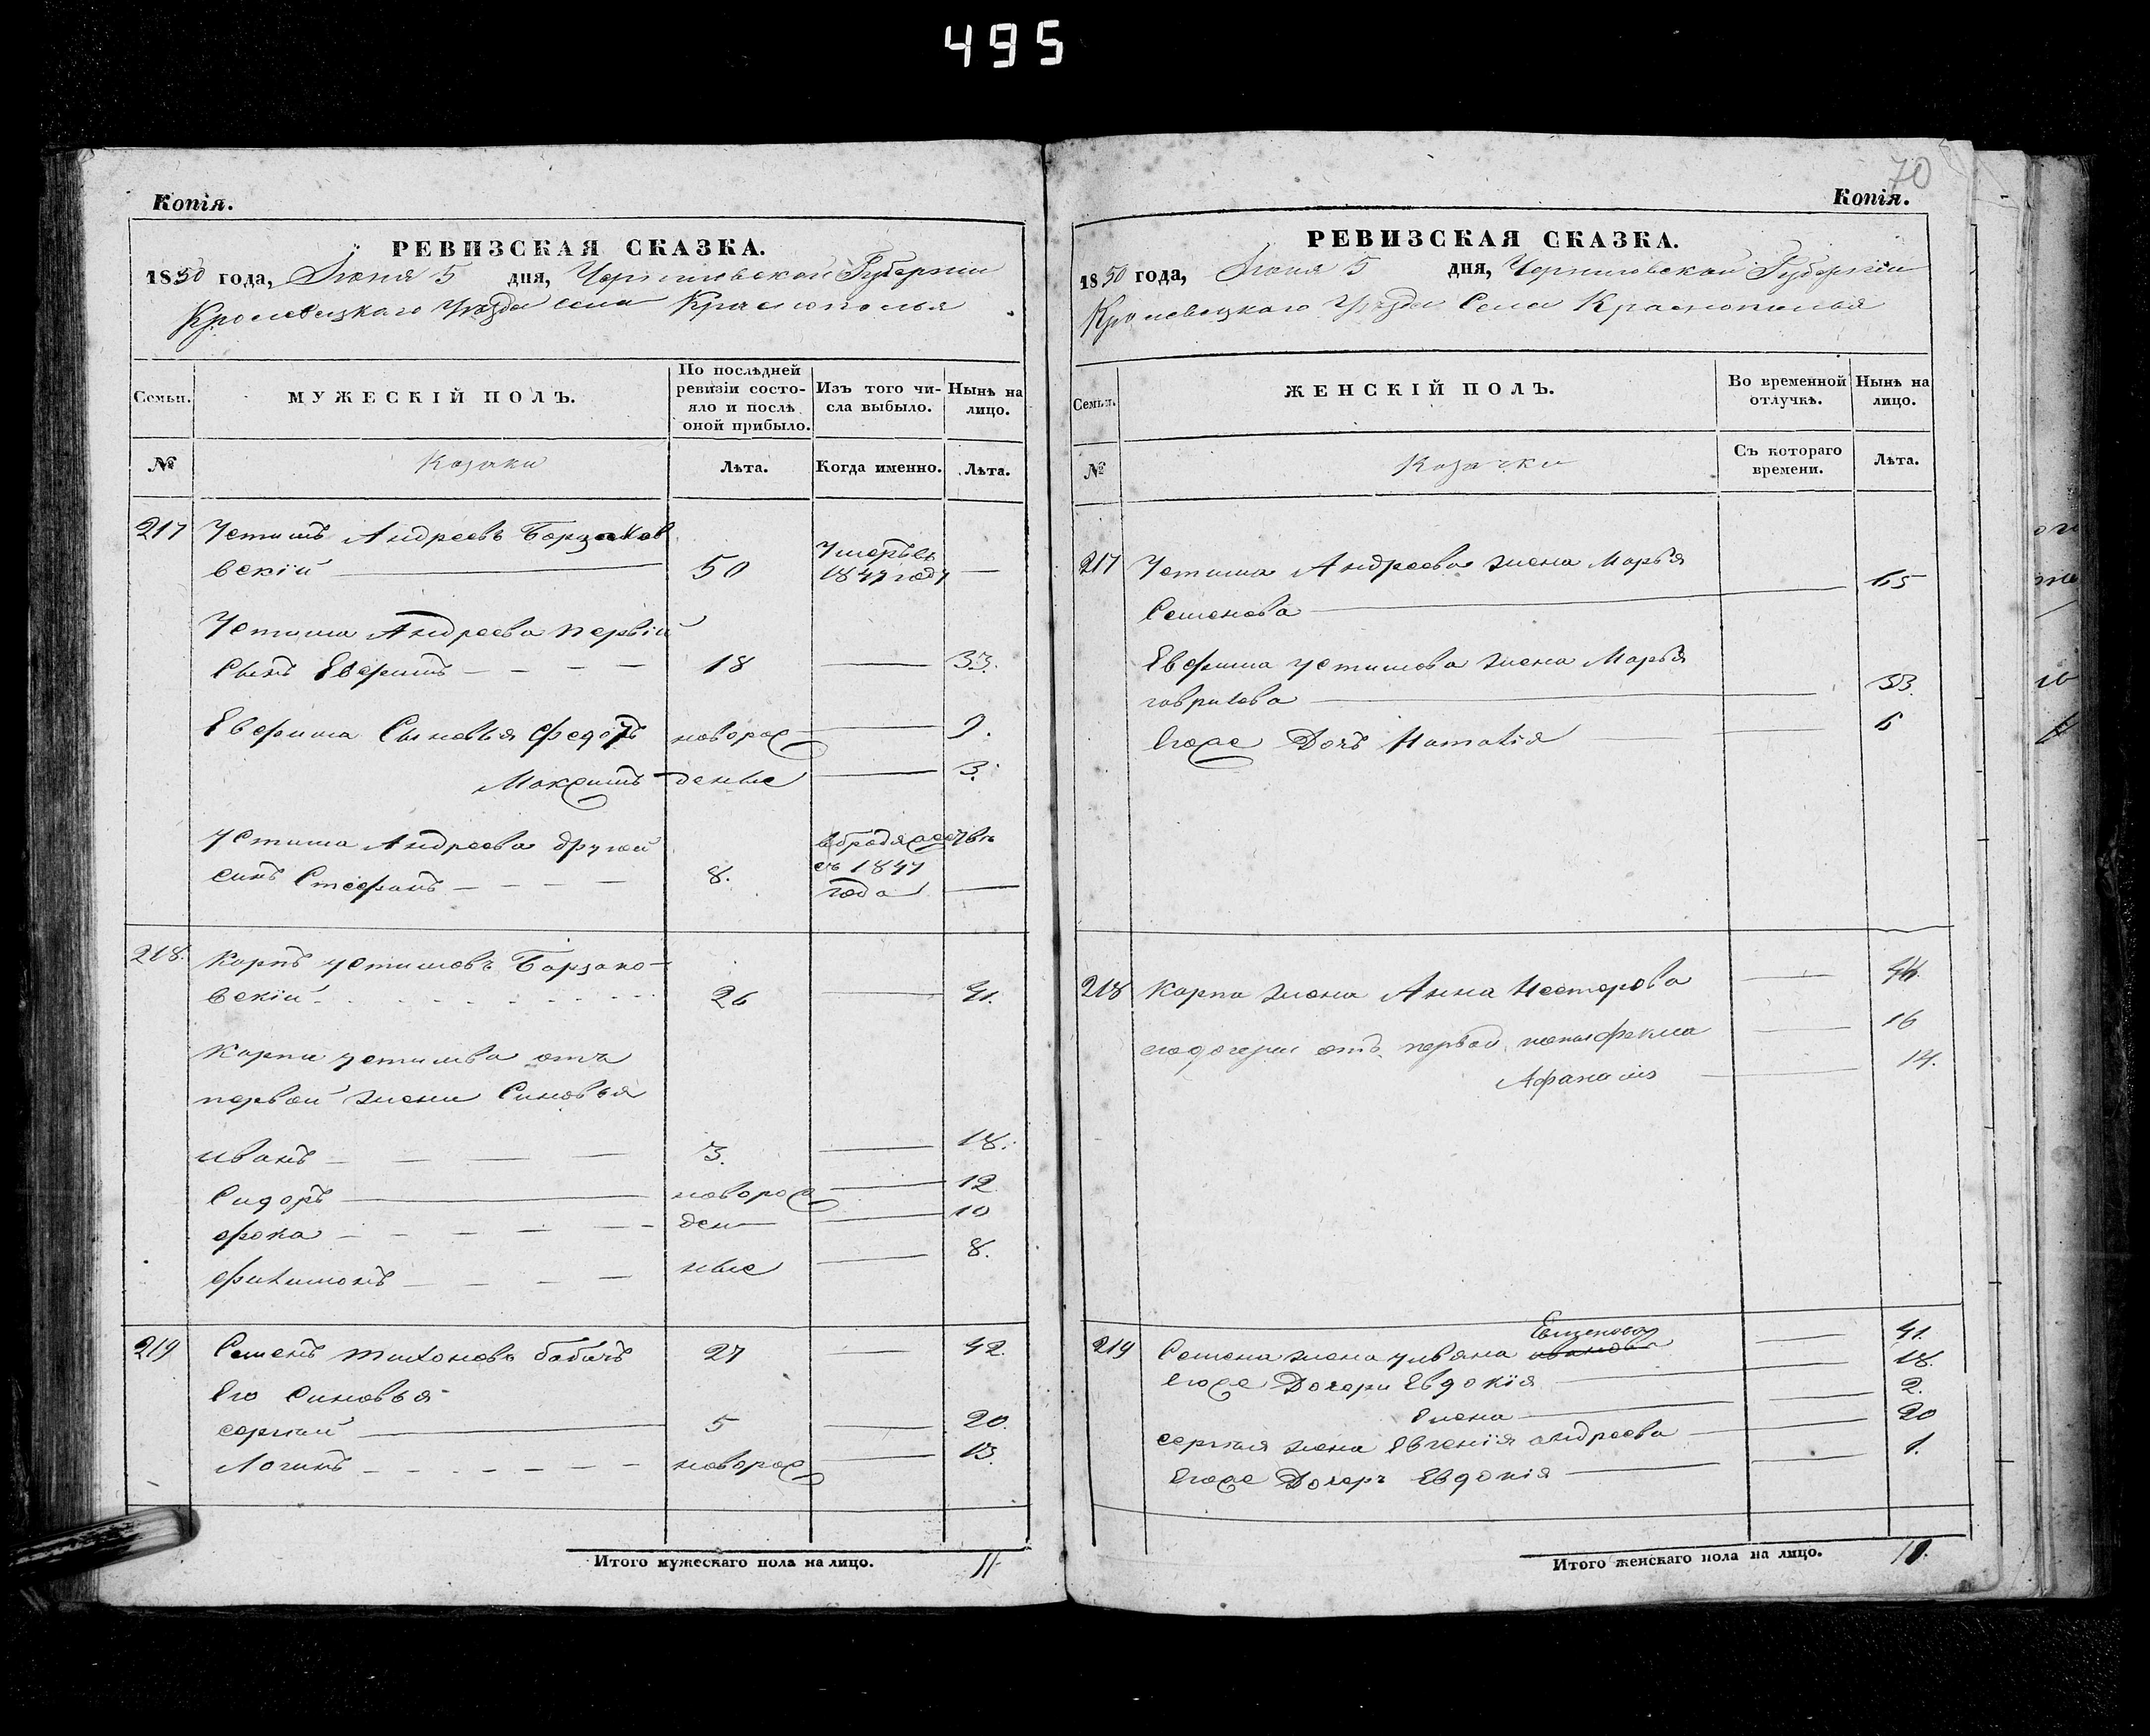 495
Копія.
РЕВИЗСКАЯ СКАЗКА.
1850 года, Июня 5 дня, Черниговской Губерніи
Кролевецкаго Уѣзда села Краснополья
Семьи.
МУЖЕСКІЙ ПОЛЪ.
По послѣдней ревизіи состояло и послѣ оной прибыло.
Изъ того числа выбыло.
Нынѣ на лицо.
№
Козаки
Лѣта.
Когда именно.
Лѣта.
217 Устимъ Андреевъ Борзаков
вскій 50 Умеръ въ 1847 году —
Устима Андреева первій
Сынъ Евфимъ 18 — 33.
Евфима Сыновья Федоръ новорож — 9.
Максимъ деные — 3.
Устима Андреева другой
синъ Стефанъ 8. съ 1847 года —
218. Карпъ Устимовъ Борзако-
вскій 26 — 41.
Карпа Устимова отъ
первой жени Синовья
Иванъ 3. — 18.
Сидоръ новорож — 12
Фока ден — 10
Филимонъ ные — 8.
219 Семенъ Тихоновъ Бабичъ 27 — 42.
Его Синовья
Сергій 5 — 20.
Логинъ новорож — 13.
Итого мужескаго пола на лицо. 11
70
Копія.
РЕВИЗСКАЯ СКАЗКА.
1850 года, Июня 5 дня, Черниговской Губерніи
Кролевецкаго Уѣзда Села Краснополья
Семьи.
ЖЕНСКІЙ ПОЛЪ.
Во временной отлучкѣ.
Нынѣ на лицо.
№
Козачки
Съ котораго времени.
Лѣта.
217 Устима Андреева жена Марья
Семенова — 65
Евфима Устимова жена Марья
Гаврилова — 33.
Егоже Дочъ Наталія — 6
218 Карпа жена Анна Нестерова — 44.
егодочери отъ первой жены Фекла — 16
Афанасія — 14.
219 Семена жена Ульяна Евменова — 41.
Егоже Дочери Евдокія — 18.
Елена — 2.
Сергія жена Евгенія Андреева — 20
Егоже Дочеръ Евдокія — 1.
Итого женскаго пола на лицо. 11.